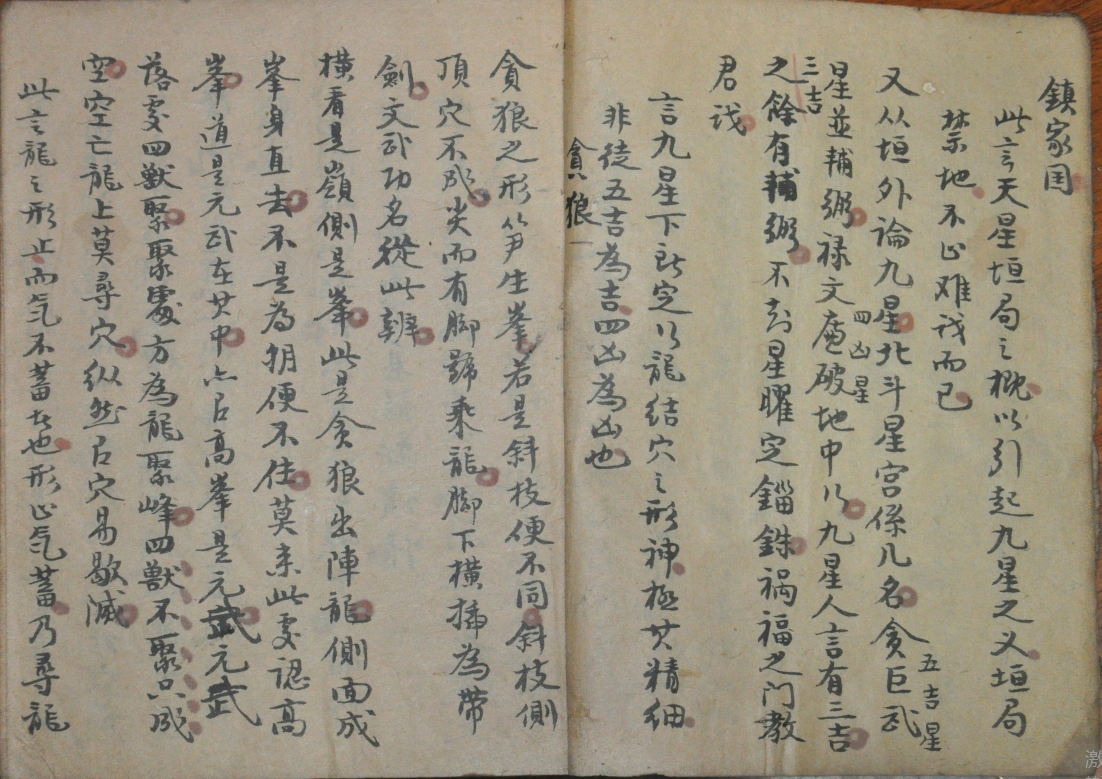 鎮家国
此言天星垣局之概以引起九星之义垣局
禁地不出难识而已
又从垣外論九星北斗星宮係几名貪巨武
五吉星
星並輔弼禄文廉破地中以九星人言有三吉
四凶星
三吉
之餘有輔弼不刮星曜定錙銖祸福之门教
君识
言九星下以定以龍結穴之形神極其精细
非徒五吉為吉四凶為凶也
貪狼一
貪狼之形笋生峯若是斜枝便不同斜枝側
頂穴不成尖而有脚號乘龍脚下横拖為带
劍文武功名從此辨
横看是嶺側是峯此是貪狼出陣龍側面成
峯身直去不是為朝便不住莫来此處認高
峯道是元武在其中亦有高峯是元武元武
落處四獸聚聚處方為龍聚峰四獸不聚只成
空空亡龍上莫尋穴纵然有穴易歇滅
此言龍之形止而气不蓄者也形止气蓄乃尋龍